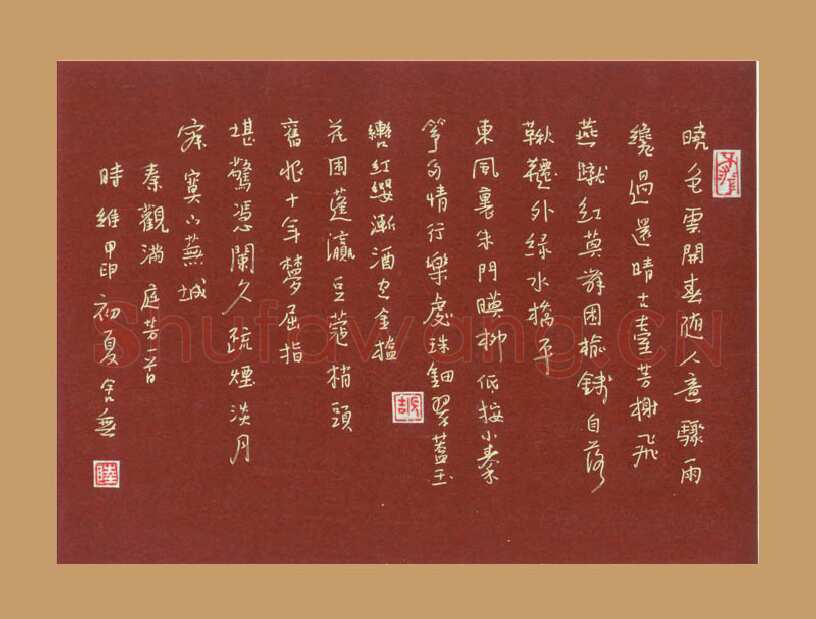 曉色雲開春隨人意驟雨
纔過還晴古臺芳榭飛
燕蹴紅英舞困榆錢自落
鞦韆外綠水橋平
東風裏朱門暎柳低按小秦
箏多情行樂處珠鈿翠蓋玉
轡紅纓漸酒空金榼
花困蓬瀛豆蔻梢頭
舊恨十年夢屈指
堪驚憑闌久疏煙淡月
寂寞下蕪城
秦觀滿庭芳一首
時維甲申初夏
陸
Shufawang.CN